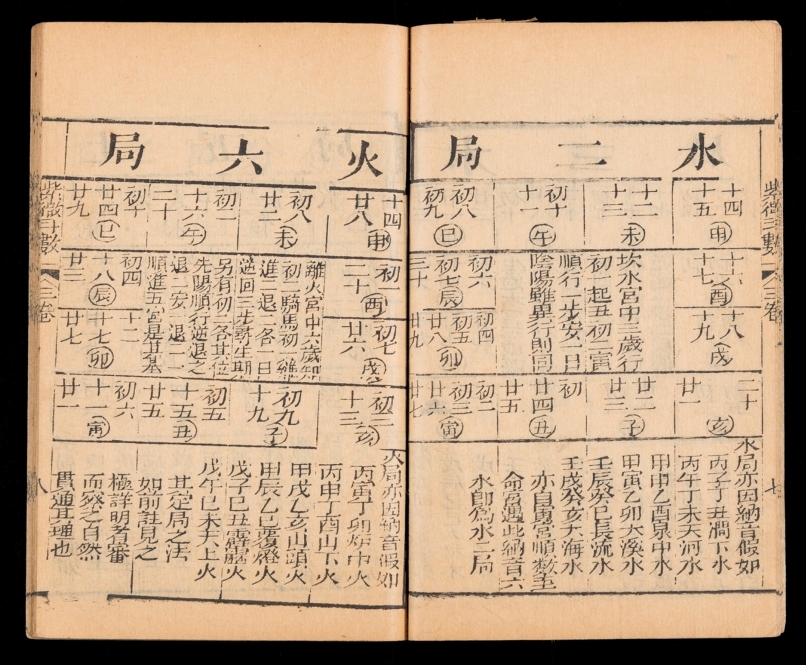 紫微斗數
三卷
七
水二局
十四
十五 申
十二
十三 未
初十
十一 午
初八
初九 巳
十六
十七 酉
十八
十九 戌
坎水宮中三歲行
初一起丑初二寅
順行一步安二日
陰陽雖異行則同
初六
初七 辰
三十
初四
初五
廿八 卯
廿九
二十
廿一 亥
廿二
廿三 子
初
廿四 丑
廿五
初二
初三 寅
廿六
廿七
水局亦因納音假如
丙子丁丑澗下水
丙午丁未天河水
甲申乙酉泉中水
甲寅乙卯大溪水
壬辰癸巳長流水
壬戌癸亥大海水
亦自寅宮順數至
命宮遇此納音六
水卽為水二局
火六局
十四
廿八 申
初八
廿二 未
初二
十六 午
二十
初十
廿四 巳
廿九
初一
二十 酉
初七
廿六 戌
離火宮中六歲知
初二騎馬初一雞
進二退一各一日
逆回三步尋生期
另有初二各其位
先陽順行逆退之
退二安一退二二
順進五宮是其基
初四
十八 辰
廿三
十二
十七 卯
廿七
初三
十三 亥
初九 子
十九
初五
十五 丑
廿五
初六
十一 寅
廿一
火局亦因納音假如
丙寅丁卯炉中火
丙申丁酉山下火
甲戌乙亥山頭火
甲辰乙巳覆燈火
戊子己丑霹靂火
戊午己未天上火
其定局之法
如前註見之
極詳明者審
而察之自然
貫通其理也
紫微斗數
三卷
八